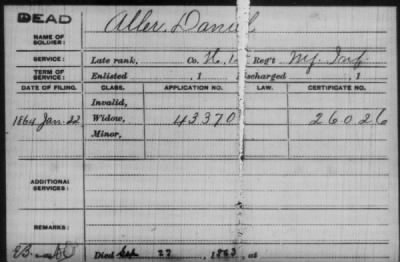 DEAD
Aller, Daniel
NAME OF SOLDIER:
SERVICE: Late rank, Co. H, Reg't N.J. Inf.
TERM OF SERVICE: Enlisted , 1 Discharged , 1
DATE OF FILING. CLASS. APPLICATION NO. LAW. CERTIFICATE NO.
Invalid,
1864 Jan. 22 Widow, 43370 26026
Minor,
ADDITIONAL SERVICES:
REMARKS:
Died 22, 1863, at